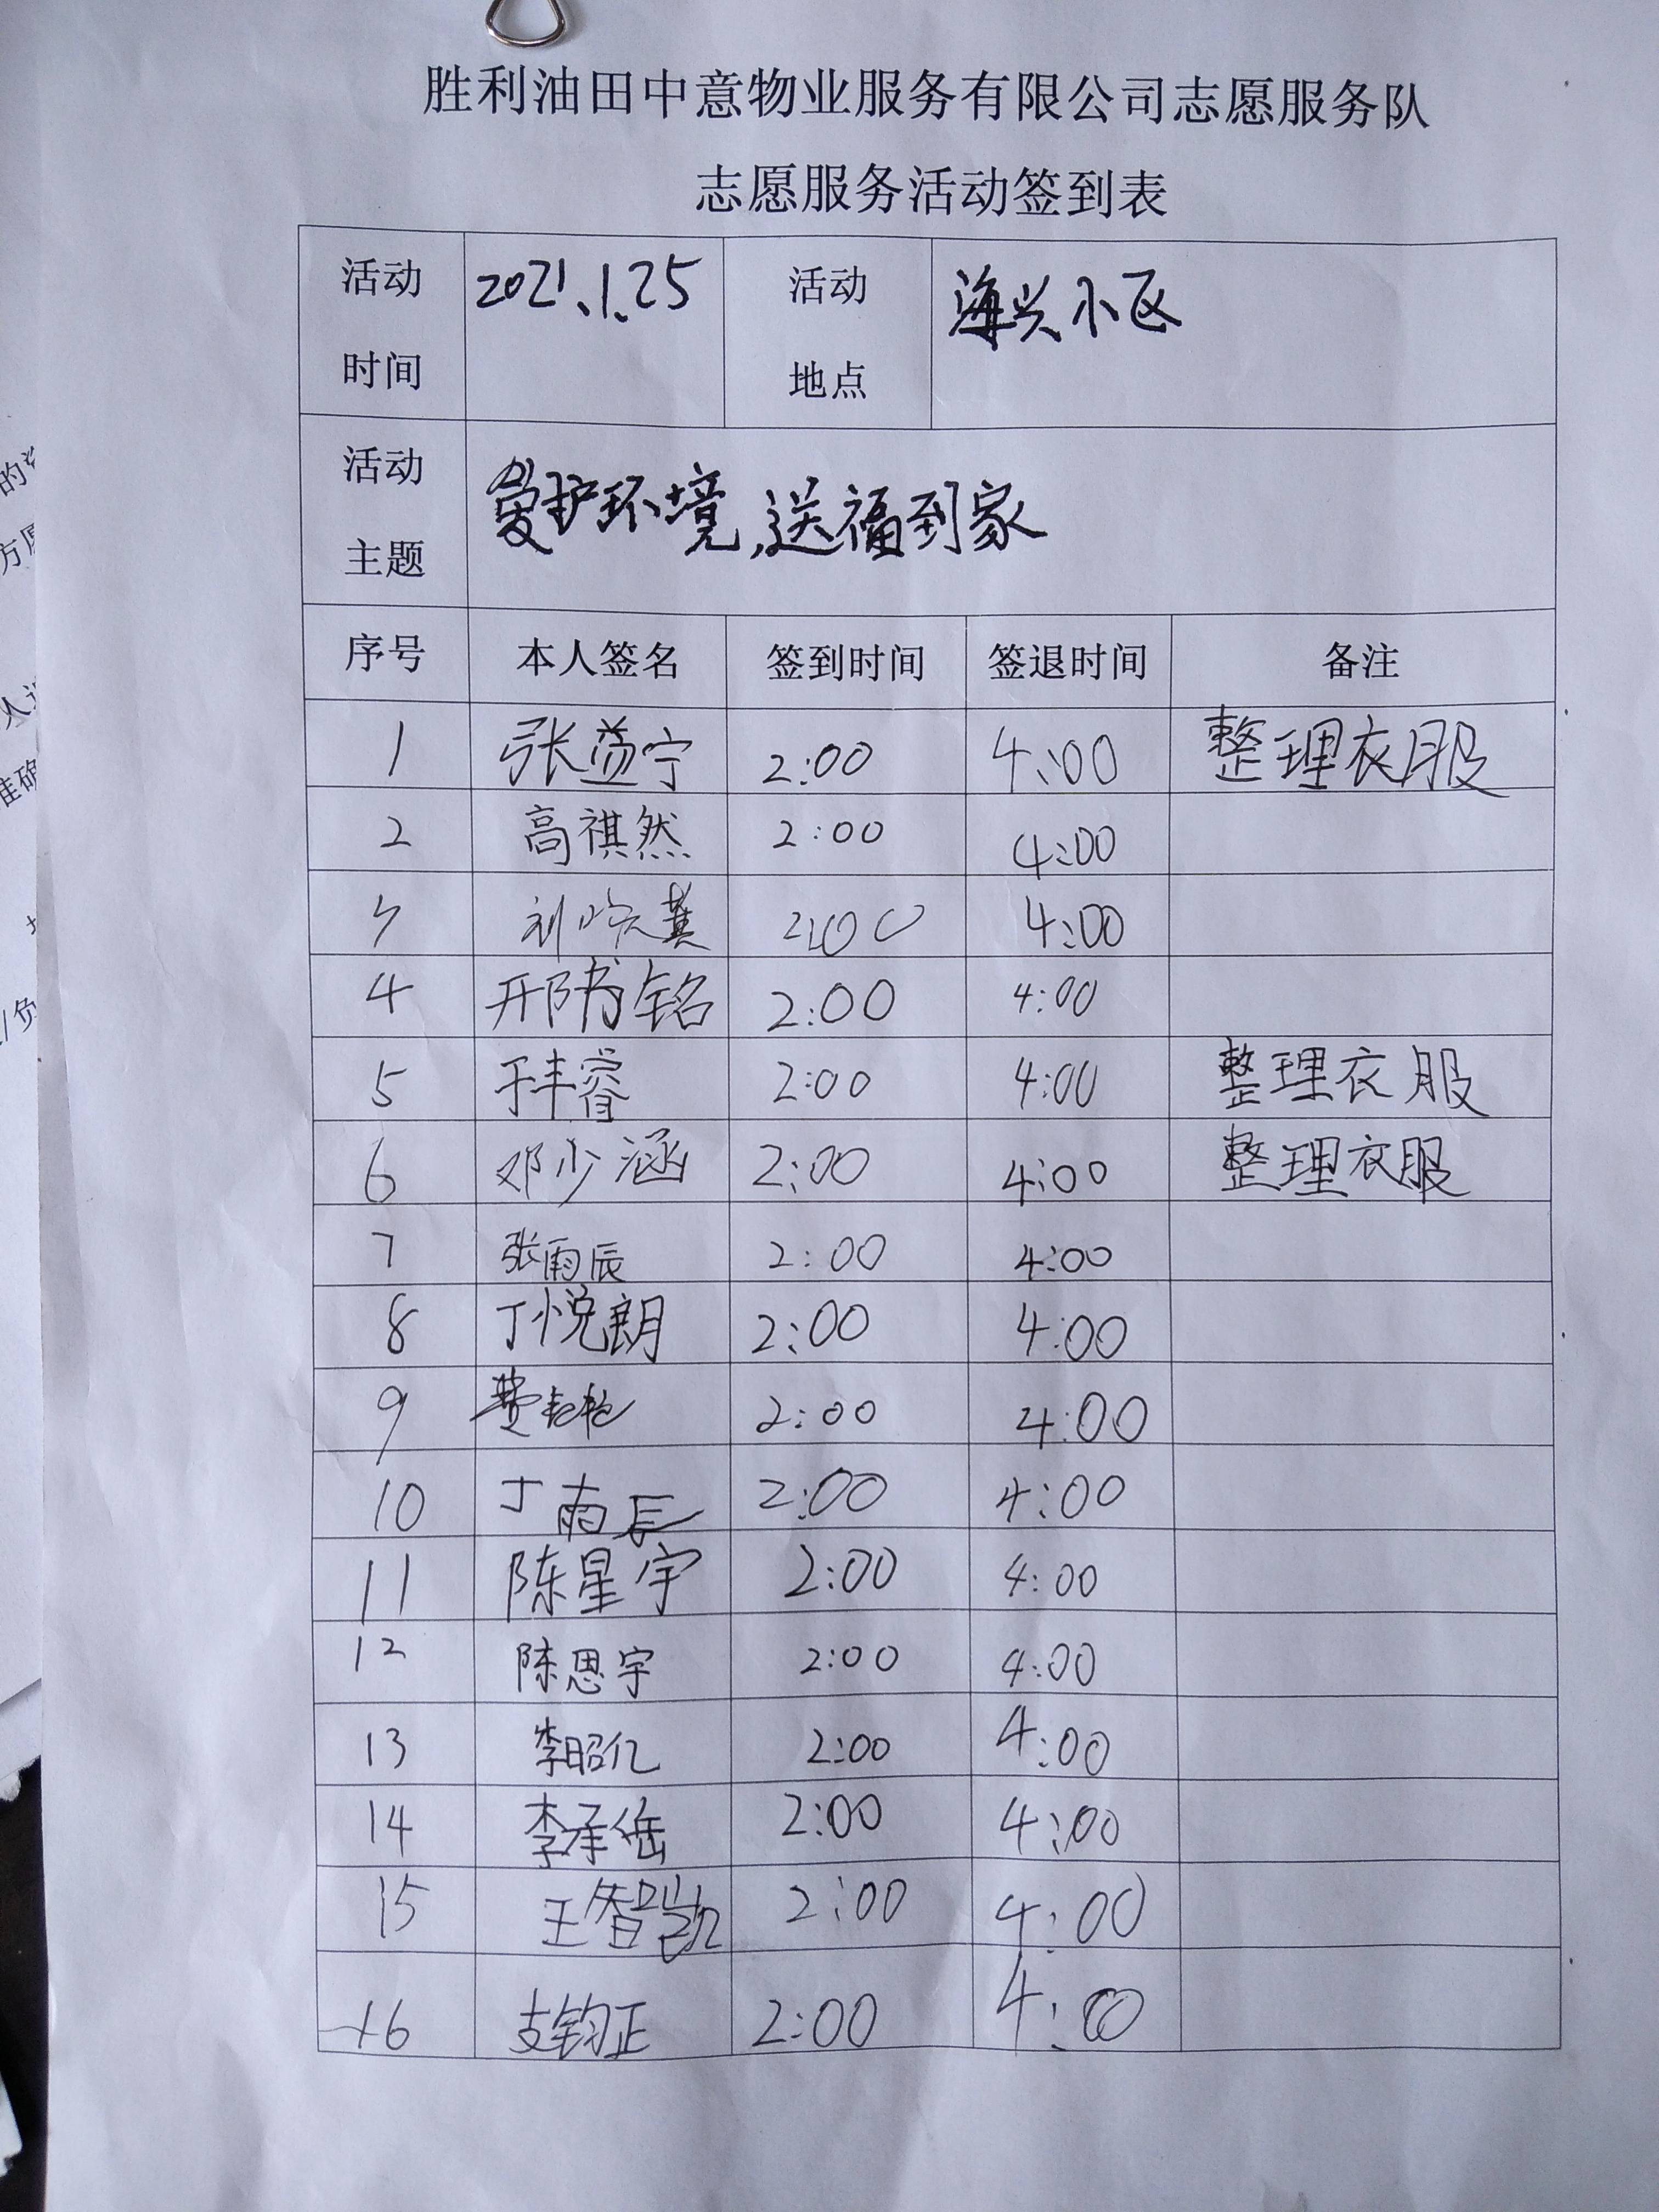 胜利油田中意物业服务有限公司志愿服务队
志愿服务活动签到表
活动时间 2021.1.25 活动地点 海兴小区
活动主题 爱护环境,送福到家
序号 本人签名 签到时间 签退时间 备注
1 张益宁 2:00 4:00 整理衣服
2 高祺然 2:00 4:00
3 刘 2:00 4:00
4 邢书铭 2:00 4:00
5 于丰睿 2:00 4:00 整理衣服
6 邓少涵 2:00 4:00 整理衣服
7 张雨辰 2:00 4:00
8 丁悦朗 2:00 4:00
9 费 2:00 4:00
10 丁雨辰 2:00 4:00
11 陈星宇 2:00 4:00
12 陈思宇 2:00 4:00
13 李昭亿 2:00 4:00
14 李承岳 2:00 4:00
15 王智凯 2:00 4:00
16 支钧正 2:00 4:00